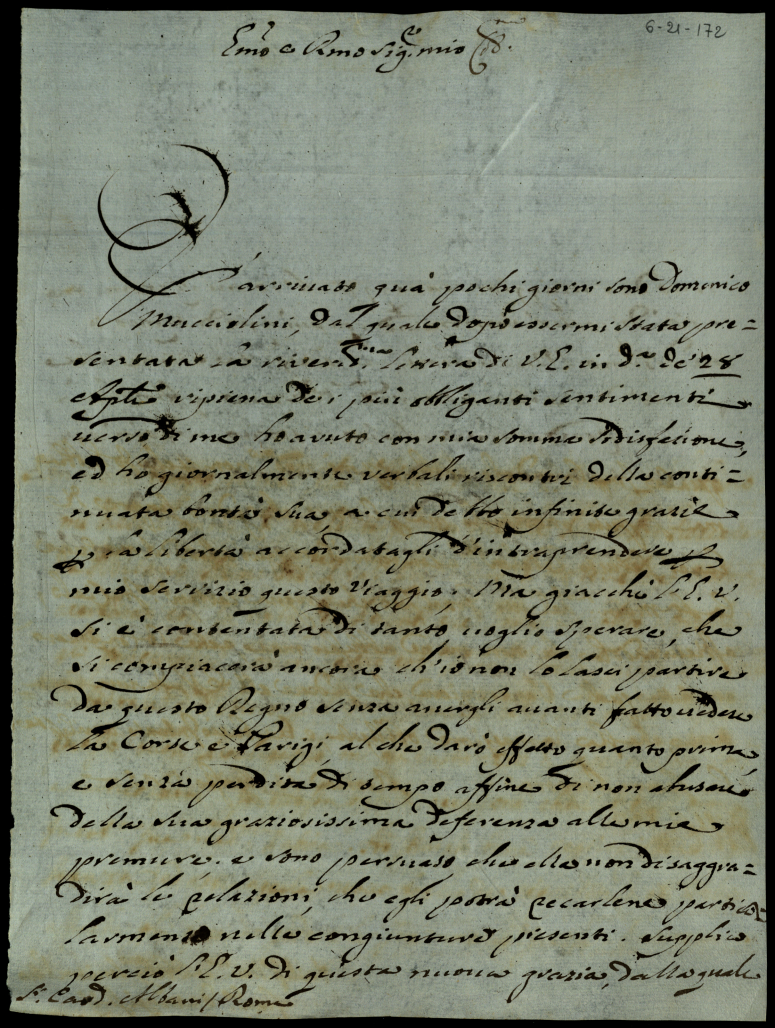 6-21-172
Em̃o e Rmo Sig.re mio
È arrivato quà pochi giorni sono Domenico
Mucciolini, dal quale dopo essermi stata pre=
sentata la river.ma lettera di V.E. in d.a de' 28
Aple ripiena de i più obliganti sentimenti
verso di me ho avuto con mia somma sodisfazione,
ed ho giornalmente verbali riscontri della conti=
nuata bontà sua a cui debbo infinite grazie
p la libertà accordatagli d'intraprendere p
mio servizio questo viaggio. Ma giacchè l'E.V.
si è contentata di tanto, voglio sperare, che
si compiacerà ancora ch'io non lo lasci partire
da questo Regno senza avergli avanti fatto vedere
la Corte e Parigi, al che darò effetto quanto prima,
e senza perdita di tempo affine di non abusare
della sua graziosissima deferenza alle mie
premure. e sono persuaso, che ella non disaggra=
dirà le relazioni, che egli potrà recarlene partico=
larmente nelle congiunture presenti. Supplico
perciò l'E.V. di questa nuova grazia, dalla quale
S.r Card. Albani / Roma